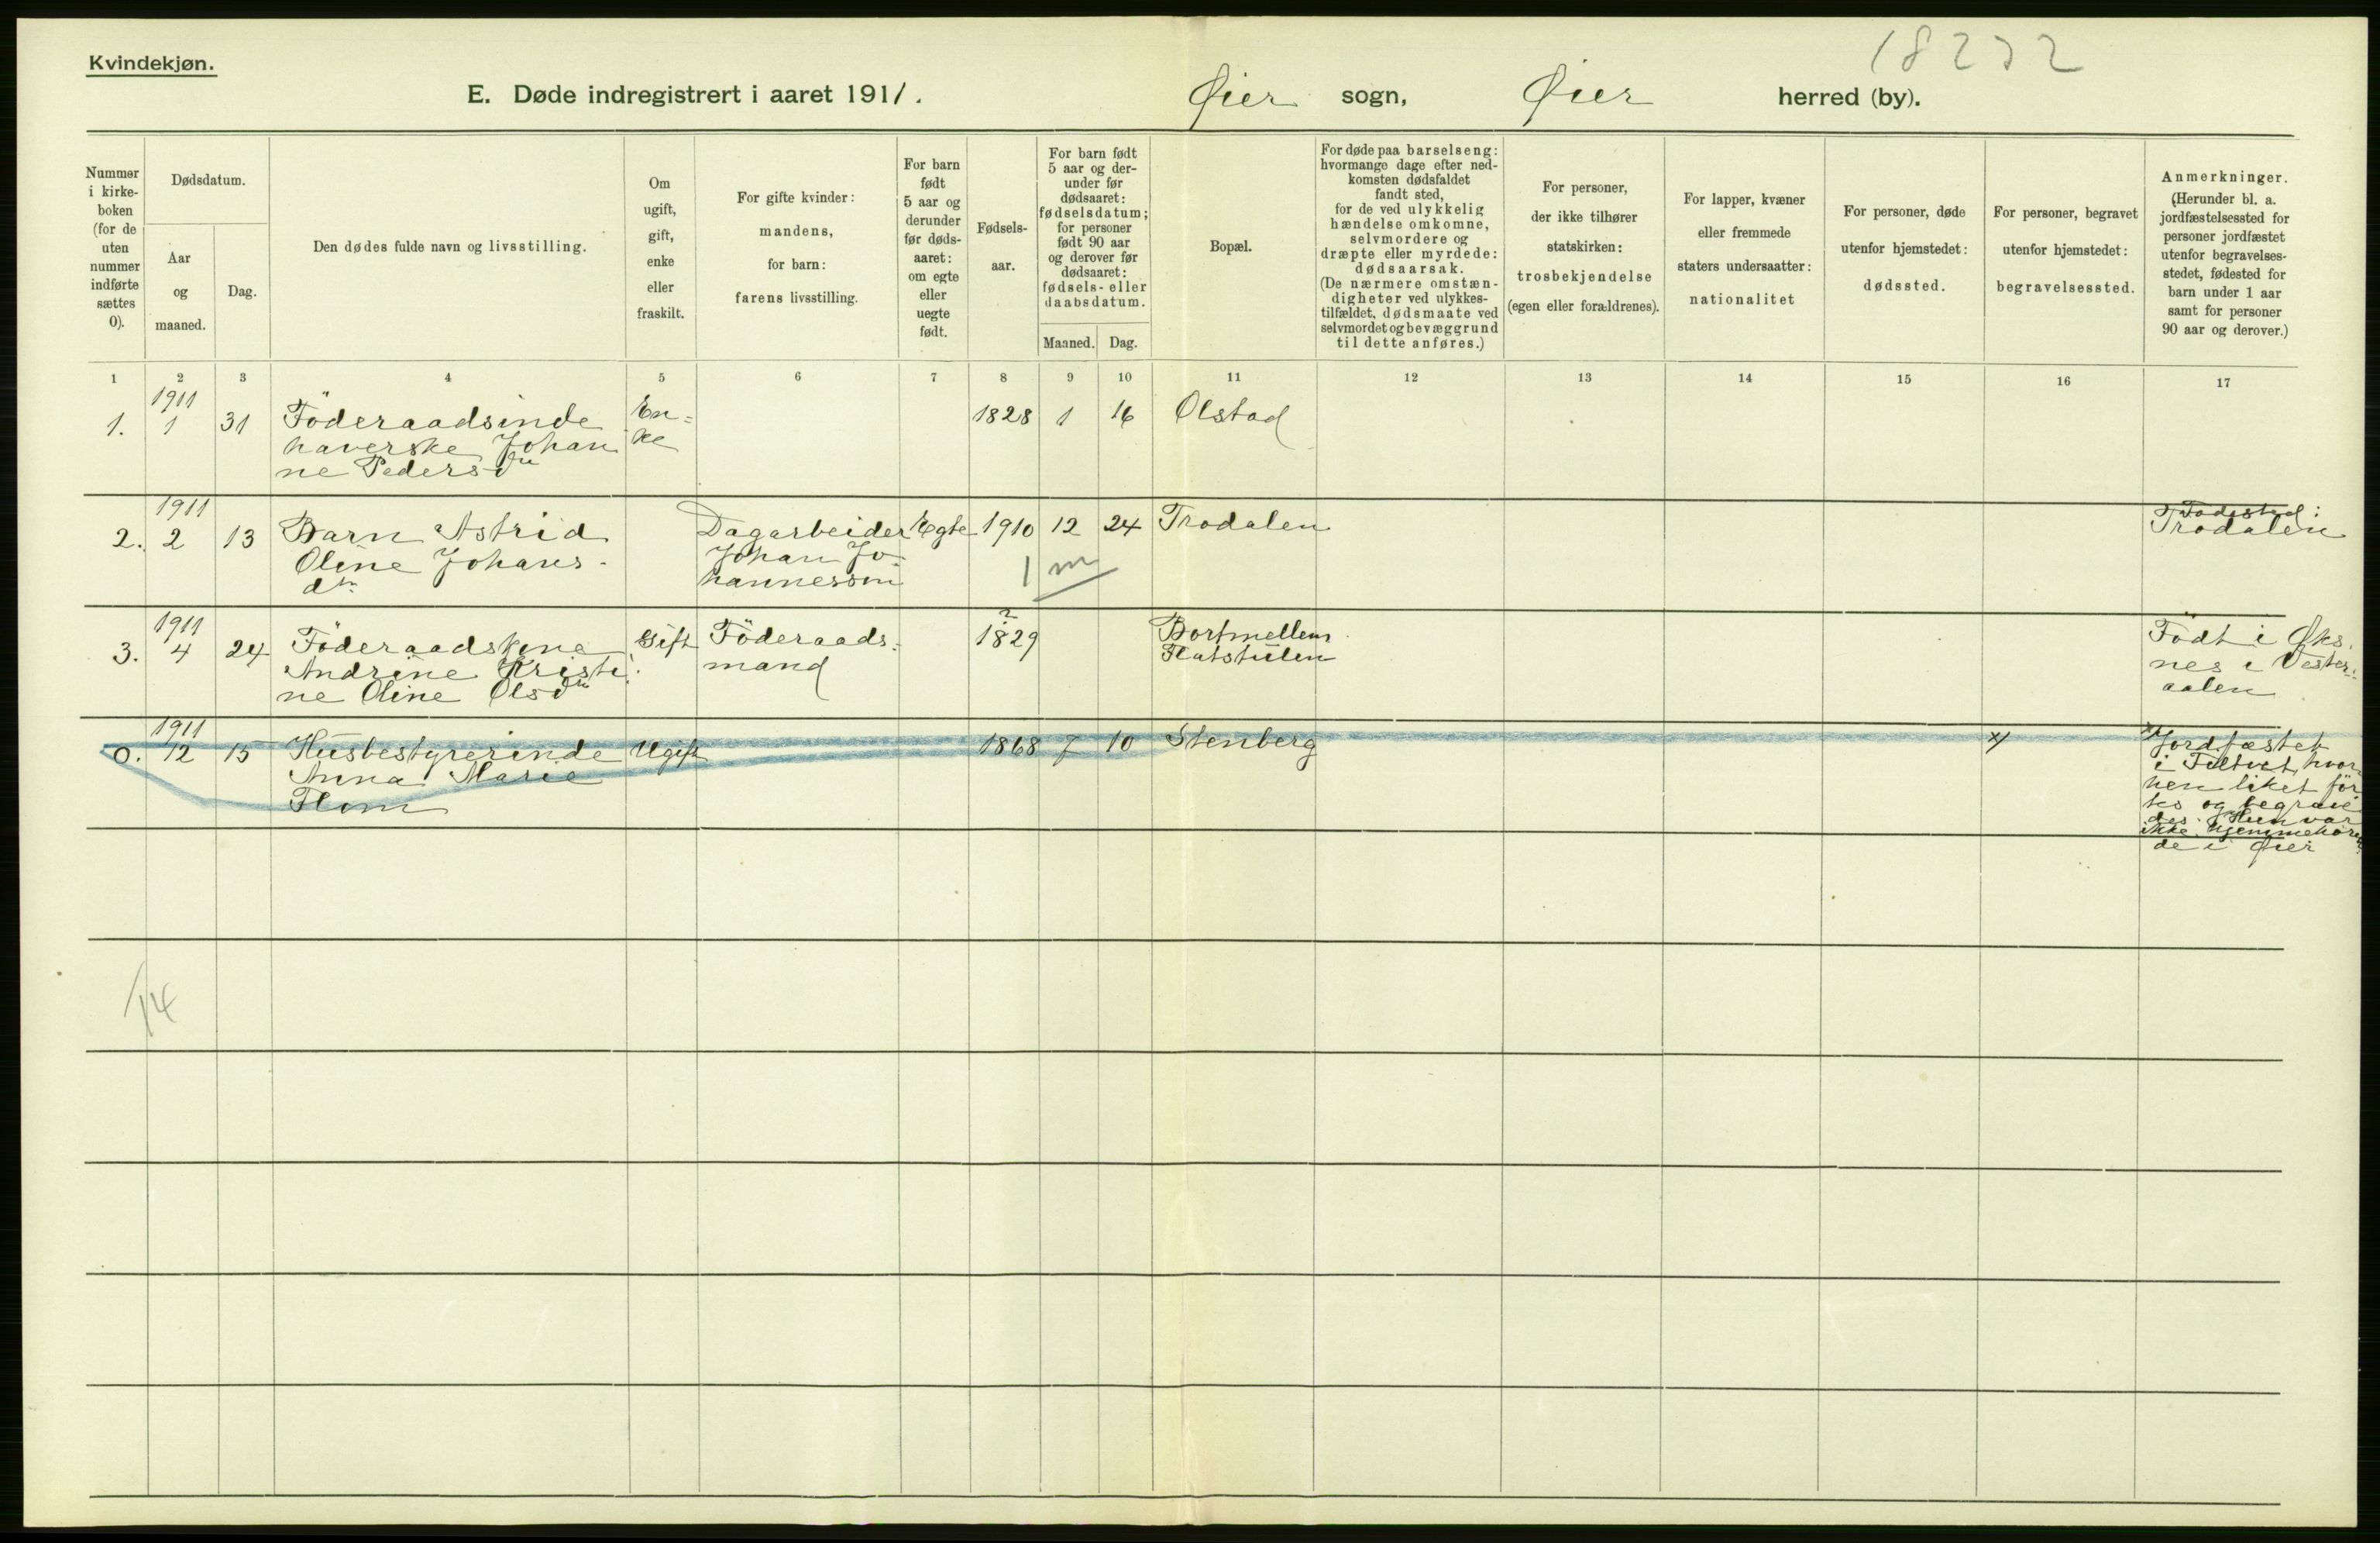 18272
Kvindekjøn.
E. Døde indregistrert i aaret 1911. Øier sogn, Øier herred (by).
Nummer
i kirke-
boken
(for de
uten
nummer
indførte
sættes
0).
Dødsdatum.
Aar
og
maaned.
Dag.
Den dødes fulde navn og livsstilling.
Om
ugift,
gift,
enke
eller
fraskilt.
For gifte kvinder:
mandens,
for barn:
farens livsstilling.
For barn
født
5 aar og
derunder
før døds-
aaret:
om egte
eller
uegte
født.
Fødsels-
aar.
For barn født
5 aar og der-
under før
dødsaaret:
fødselsdatum;
for personer
født 90 aar
og derover før
dødsaaret:
fødsels- eller
daabsdatum.
Maaned. Dag.
Bopæl.
For døde paa barselseng:
hvormange dage efter ned-
komsten dødsfaldet
fandt sted,
for de ved ulykkelig
hændelse omkomne,
selvmordere og
dræpte eller myrdede:
dødsaarsak.
(De nærmere omstæn-
digheter ved ulykkes-
tilfældet, dødsmaate ved
selvmordet og bevæggrund
til dette anføres.)
For personer,
der ikke tilhører
statskirken:
trosbekjendelse
(egen eller forældrenes).
For lapper, kvæner
eller fremmede
staters undersaatter:
nationalitet
For personer, døde
utenfor hjemstedet:
dødssted.
For personer, begravet
utenfor hjemstedet:
begravelsessted.
Anmerkninger.
(Herunder bl. a.
jordfæstelsessted for
personer jordfæstet
utenfor begravelses-
stedet, fødested for
barn under 1 aar
samt for personer
90 aar og derover.)
1 2 3 4 5 6 7 8 9 10 11 12 13 14 15 16 17
1911
1. 1 31 Föderaadsinde En= 1828 1 16 Olstad
haverske Johan ke
ne Pedersdtr
1911 Fødested:
2. 2 13 Barn Astrid Dagarbeider Egte 1910 12 24 Trodalen Trodalen
Oline Johans- Johan Jo-
dtr. hannessen 1 m
1911 ?
3. 4 24 Föderaadskone Gift Föderaads- 1829 Bortmellem Födt i Øks-
Andrine Kristi- mand Flatstulen nes i Vester-
ne Oline Olsdtr aalen
1911
0. 12 15 Husbestyrerinde Ugift 1868 7 10 Stenberg x) x) Jordfæstet
Anna Marie i Tultvet, hvor
Flom hen liket för
tes og begrave
des. Hun var
ikke hjemmehören
de i Øier
14